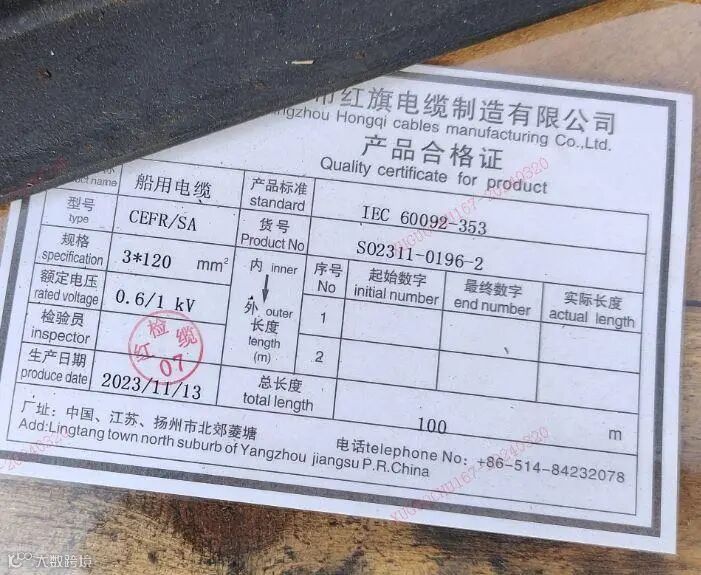 市红旗电缆制造有限公司
angzhou Hongqi cables manufacturing Co.,Ltd.
产品合格证
Quality certificate for product
product name 船用电缆 产品标准 standard IEC 60092-353
型号 type CEFR/SA 货号 Product No SO2311-0196-2
规格 specification 3*120 mm² 内 inner 外 outer 长度 length (m) 序号 No 起始数字 initial number 最终数字 end number 实际长度 actual length
额定电压 rated voltage 0.6/1 kV 1
检验员 inspector 检 缆 红 07 2
生产日期 produce date 2023/11/13 总长度 total length 100 m
厂址：中国、江苏、扬州市北郊菱塘
Add:Lingtang town north suburb of Yangzhou jiangsu P.R.China
电话telephone No：+86-514-84232078
大数跨境